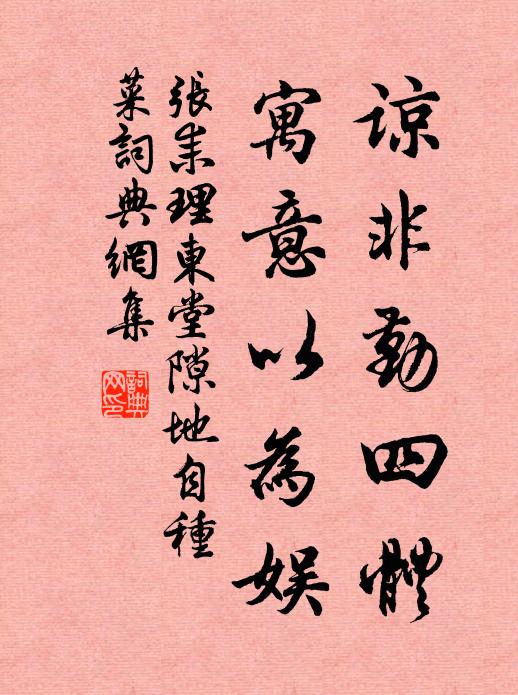 諒非勤四體
寓意以為娛
張耒理東堂隙地自種
菜詞典網集
詞典
网印